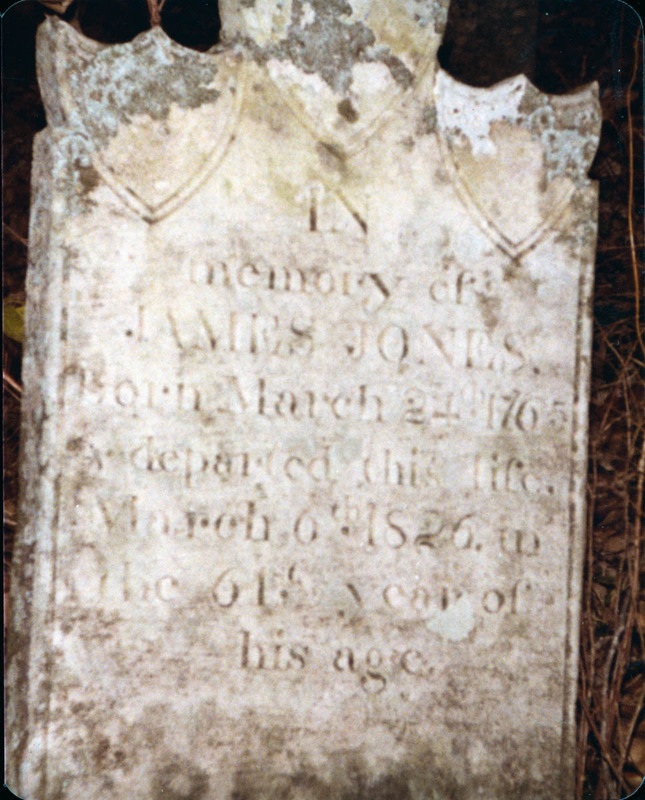 IN
memory of
JAMES JONES.
Born March 24th 1765
& departed this life,
March 6th 1826. in
the 61st year of
his age.